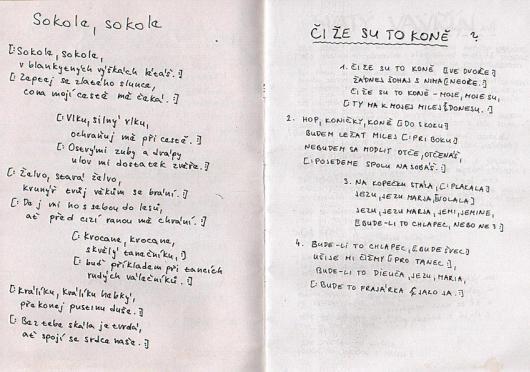 Sokole, sokole
[: Sokole, sokole,
v blankytných výškách létáš. :]
[: Zeptej se zlatého slunce,
co na mojí cestě mě čeká. :]
[: Vlku, silný vlku,
ochraňuj mě při cestě. :]
[: Ostrými zuby a drápy
ulov mi dostatek zvěře. :]
[: Želvo, stará želvo,
krunýř tvůj věkům se brání. :]
[: Dej mi ho s sebou do lesů,
ať před cizí ranou mě chrání. :]
[: Krocane, krocane,
skvělý tanečníku, :]
[: buď příkladem při tancích
rudých válečníků. :]
[: Králíku, králíku hebký,
překonej pustinu duše. :]
[: Bez tebe skála je tvrdá,
ať spojí se srdce naše. :]
ČI ŽE SU TO KONĚ ?
1. ČI ŽE SU TO KONĚ [: VE DVOŘE :]
ŽÁDNEJ ŠOHAJ S NIMA [: NEOŘE. :]
ČI ŽE SU TO KONĚ - MOJE, MOJE SU,
[: TY MA K MOJEJ MILEJ :] DONESU. :]
2. HOP, KONÍČKY, KONĚ [: DO SKOKU :]
BUDEM LEŽAT MILEJ [: PRI BOKU :]
NEBUDEM SA MODLIT OTČE, OTČENÁŠ,
[: POJEDEME SPOLU NA SOBÁŠ. :]
3. NA KOPEČKU STÁLA, [: PLAKALA :]
JEZU, JEZU MARJA [: VOLALA :]
JEZU, JEZU MARJA, JEMI, JEMINE,
[: BUDE-LI TO CHLAPEC, NEBO NE? :]
4. BUDE-LI TO CHLAPEC, [: BUDE ŠVEC :]
UŠIJE MI ČIŽMY [: PRO TANEC :],
BUDE-LI TO DIEUČA, JEZU, MARIA,
[: BUDE TO FRAJÁRKA [: JAKO JA. :]